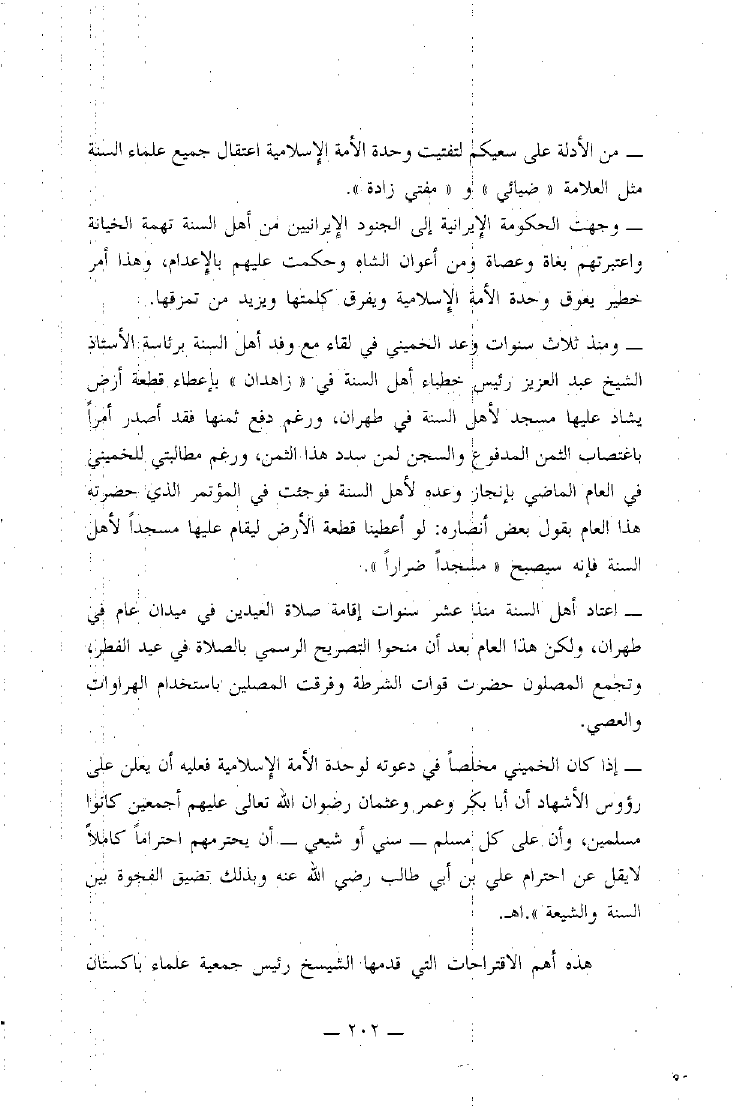 ــ من الأدلة على سعيكم لتفتيت وحدة الأمة الإسلامية اعتقال جميع علماء السنة
مثل العلامة « ضيائي » و « مفتي زادة ».
ــ وجهت الحكومة الإيرانية إلى الجنود الإيرانيين من أهل السنة تهمة الخيانة
واعتبرتهم بغاة وعصاة ومن أعوان الشاه وحكمت عليهم بالإعدام، وهذا أمر
خطير يعوق وحدة الأمة الإسلامية ويفرق كلمتها ويزيد من تمزقها.
ــ ومنذ ثلاث سنوات وعد الخميني في لقاء مع وفد أهل السنة برئاسة الأستاذ
الشيخ عبد العزيز رئيس خطباء أهل السنة في « زاهدان » بإعطاء قطعة أرض
يشاد عليها مسجد لأهل السنة في طهران، ورغم دفع ثمنها فقد أصدر أمراً
باغتصاب الثمن المدفوع والسجن لمن سدد هذا الثمن، ورغم مطالبتي للخميني
في العام الماضي بإنجاز وعده لأهل السنة فوجئت في المؤتمر الذي حضرته
هذا العام بقول بعض أنصاره: لو أعطينا قطعة الأرض ليقام عليها مسجداً لأهل
السنة فإنه سيصبح « مسجداً ضراراً ».
ــ اعتاد أهل السنة منذ عشر سنوات إقامة صلاة العيدين في ميدان عام في
طهران، ولكن هذا العام بعد أن منحوا التصريح الرسمي بالصلاة في عيد الفطر،
وتجمع المصلون حضرت قوات الشرطة وفرقت المصلين باستخدام الهراوات
والعصي.
ــ إذا كان الخميني مخلصاً في دعوته لوحدة الأمة الإسلامية فعليه أن يعلن على
رؤوس الأشهاد أن أبا بكر وعمر وعثمان رضوان الله تعالى عليهم أجمعين كانوا
مسلمين، وأن على كل مسلم ــ سني أو شيعي ــ أن يحترمهم احتراماً كاملاً
لايقل عن احترام علي بن أبي طالب رضي الله عنه وبذلك تضيق الفجوة بين
السنة والشيعة ».اهـ.
هذه أهم الاقتراحات التي قدمها الشيسخ رئيس جمعية علماء باكستان
ــ ٢٠٢ ــ